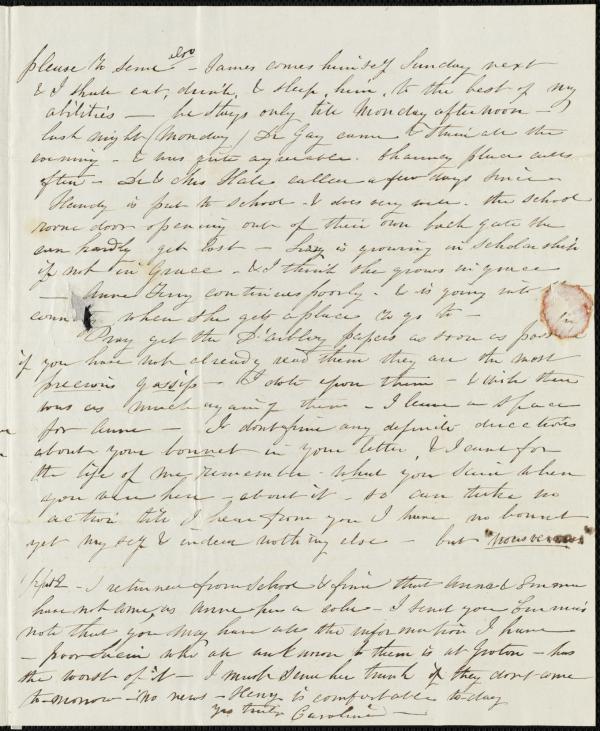 please to send also - James comes himself Sunday next
& I shall eat, drink, & sleep, him, to the best of my
abilities - he stays only till Monday afternoon -
last night (Monday) Dr Gay came & staid all the
evening - & was quite agreeable. Chauncy place calls
often - Dr & Mrs Hale called a few days since -
Handy is put to school - & does very well. the school
room door opening out of their own back gate she
can hardly get lost - Lucy is growing in scholarship
if not in Grace - & I think she grows in grace
- Anne Terry continues poorly - & is going into the
when she gets a place to go to -
Pray get the D'arblay papers as soon as possible
if you have not already read them they are the most
precious gossip - I dote upon them - & wish there
was as much again of them - I leave a space
for Anne - I don't find any definite directions
about your bonnet in your letter, & I can't for
the life of me remember what you said when
you were here - about it - so can take no
action till I hear from you I have no bonnet
yet myself & indeed nothing else - but "nous verrons"
1/2 past 2 - I returned from school & find that Anna & Emma
have not come, as Anne has a cold - I send you Emma's
note that you may have all the information I have
- poor who all unknown to them is at Groton - has
the worst of it - I must send her trunk if they dont come
to-morrow - No news - Henry is comfortable to-day
yrs truly Caroline -